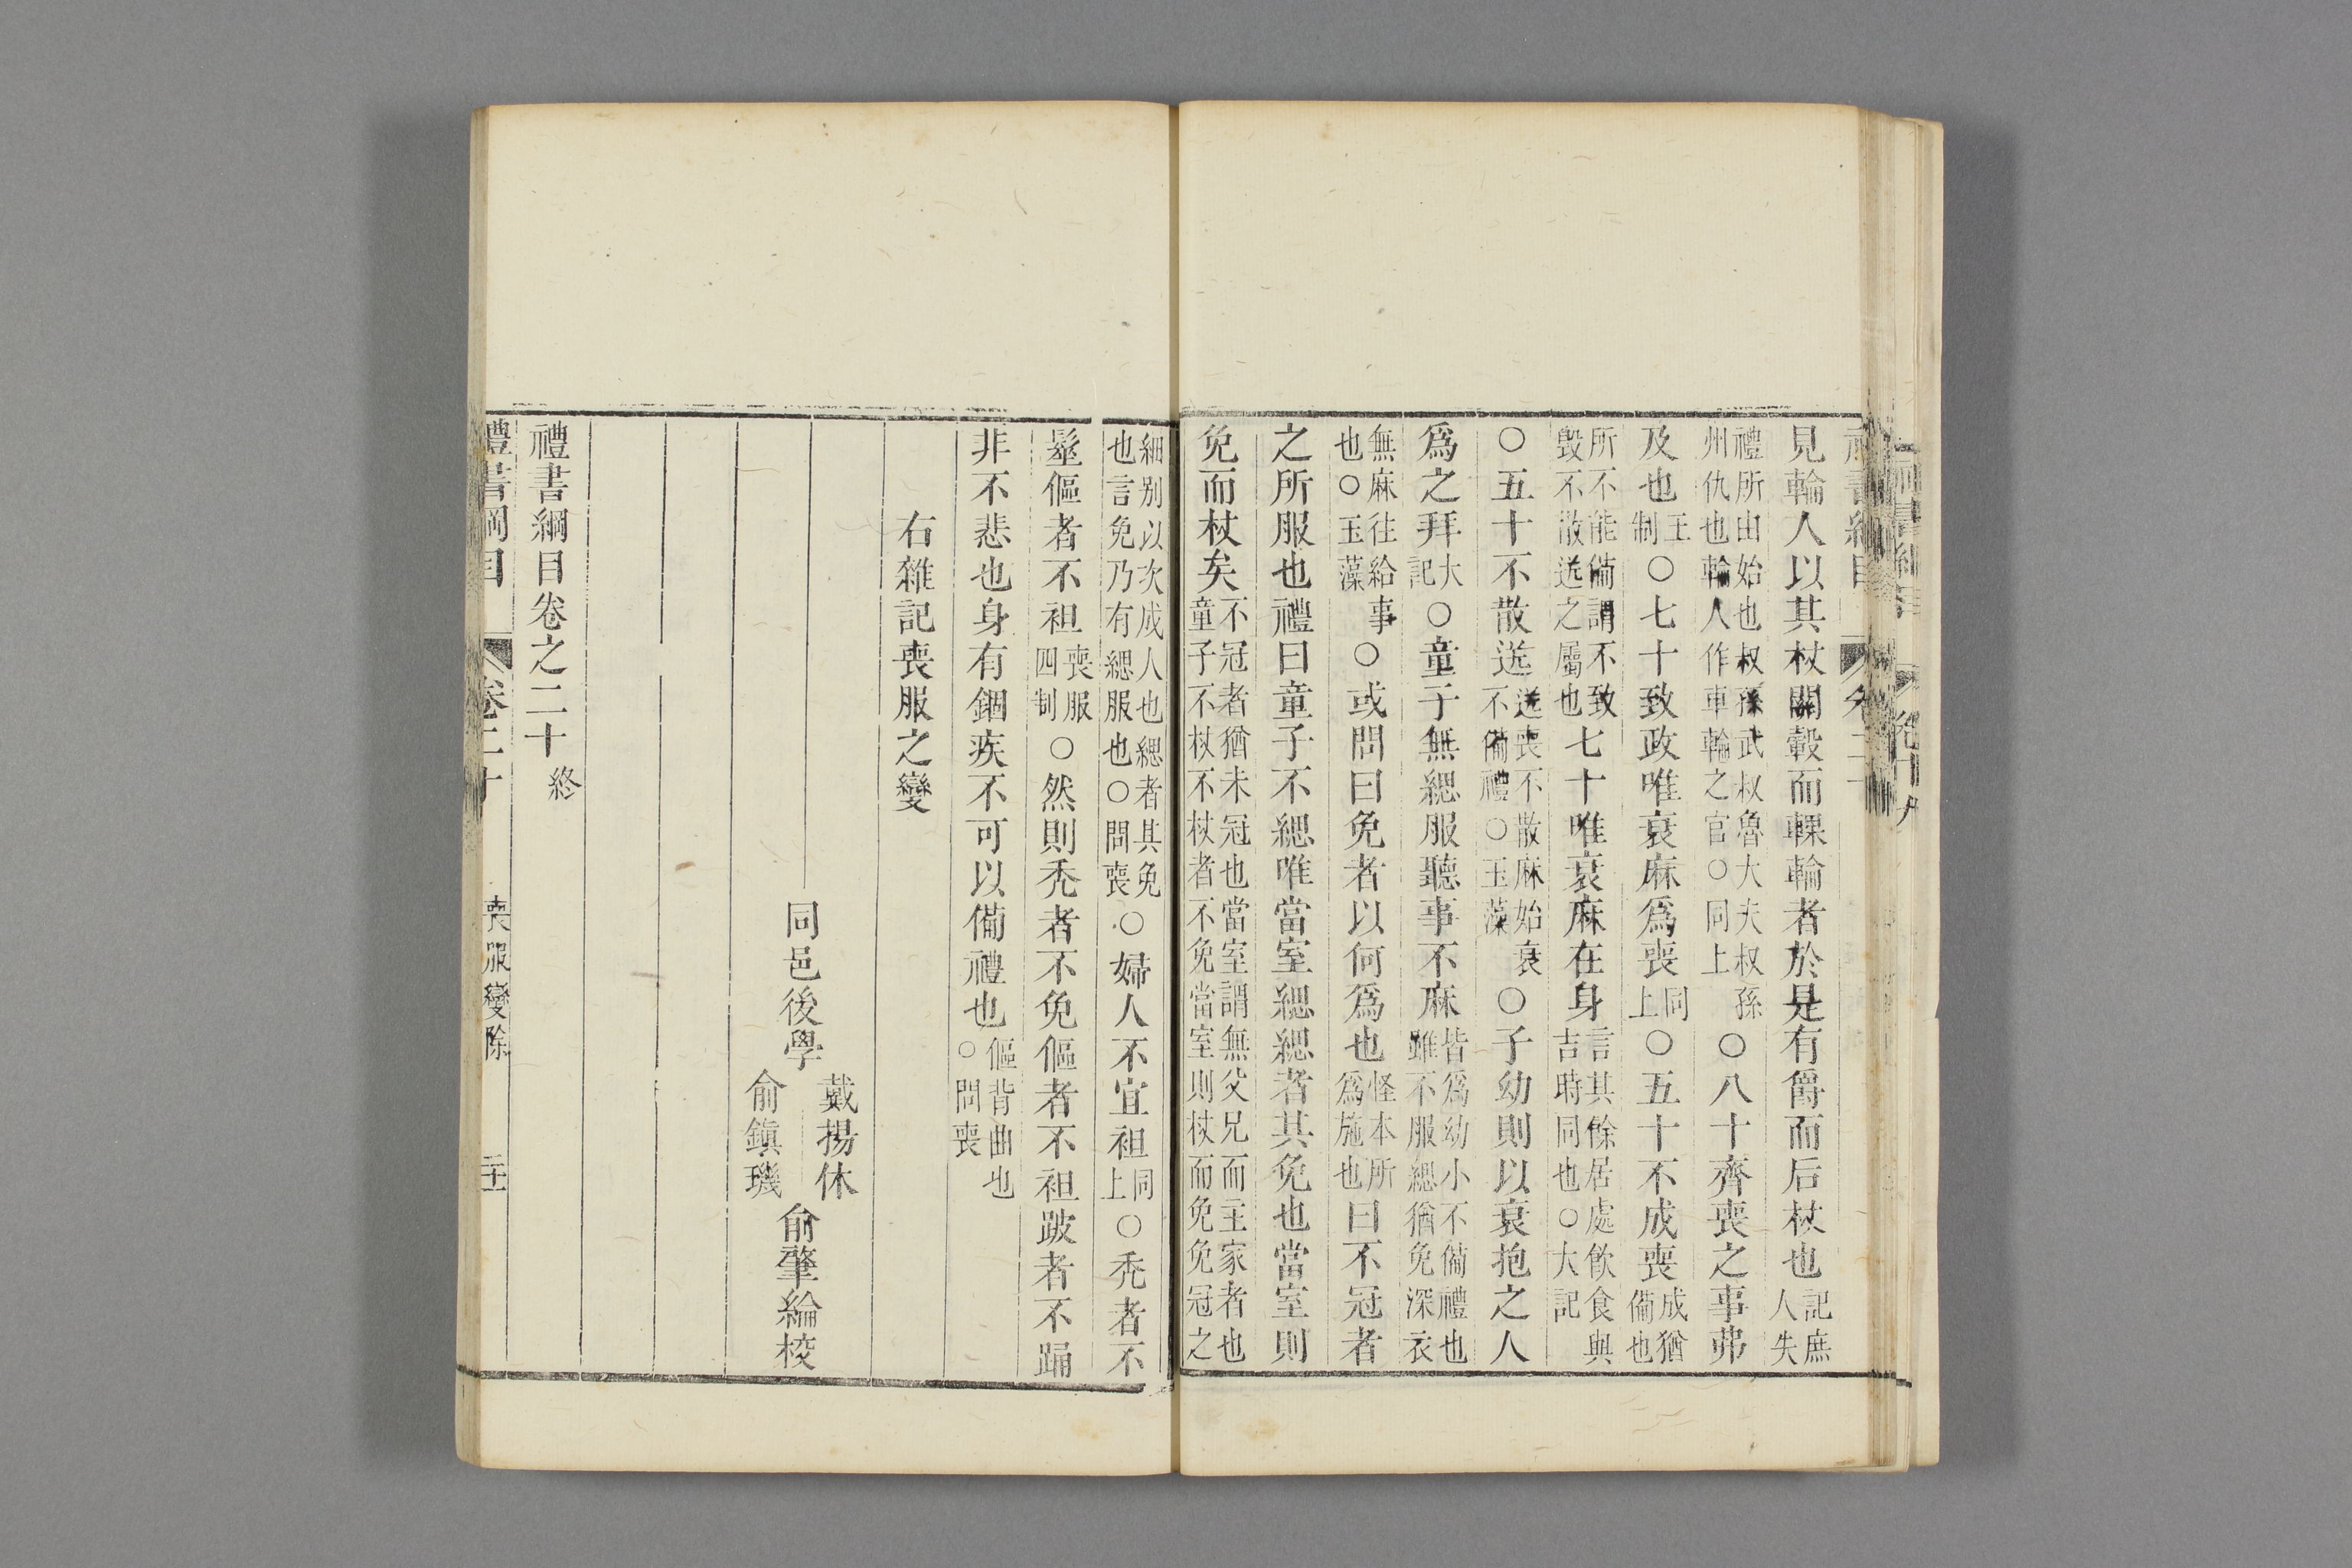 見輪人以其杖關轂而輠輪者於是有爵而后杖也記庶人失
禮所由始也叔孫武叔魯大夫叔孫州仇也輪人作車輪之官○同上○八十齊喪之事弗
及也王制○七十致政唯衰麻爲喪同上○五十不成喪成猶備也
所不能備謂不致毀不散送之屬也七十唯衰麻在身言其餘居處飲食與吉時同也○大記
○五十不散送送喪不散麻始衰不備禮○玉藻○子幼則以衰抱之人
爲之拜大記○童子無緦服聽事不麻皆爲幼小不備禮也雖不服緦猶免深衣
無麻往給事也○玉藻○或問曰免者以何爲也怪本所爲施也曰不冠者
之所服也禮曰童子不緦唯當室緦緦者其免也當室則
免而杖矣不冠者猶未冠也當室謂無父兄而主家者也童子不杖不杖者不免當室則杖而免免冠之
細别以次成人也緦者其免也言免乃有緦服也○問喪○婦人不宜袒同上○禿者不
髽傴者不袒喪服四制○然則禿者不免傴者不袒跛者不踊
非不悲也身有錮疾不可以備禮也傴背曲也○問喪
右雜記喪服之變
同邑後學戴揚休俞鎮璣俞肇綸校
禮書綱目卷之二十終
禮書綱目 卷二十 喪服變除